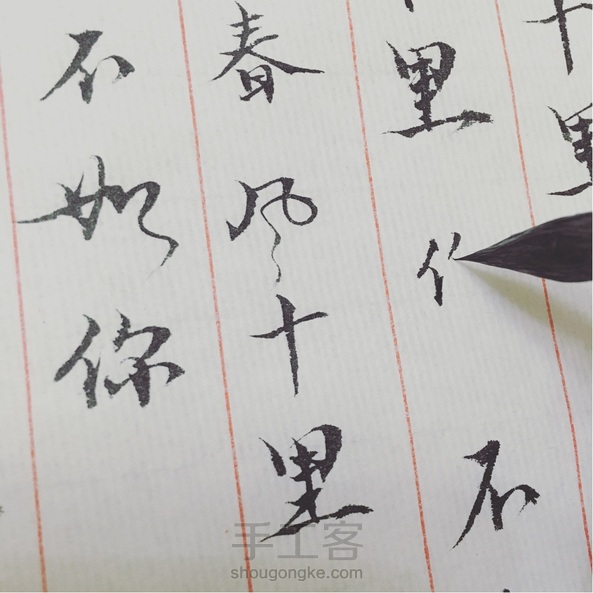 十里
里
不
春风十里
不如你
手工客
shougongke.com